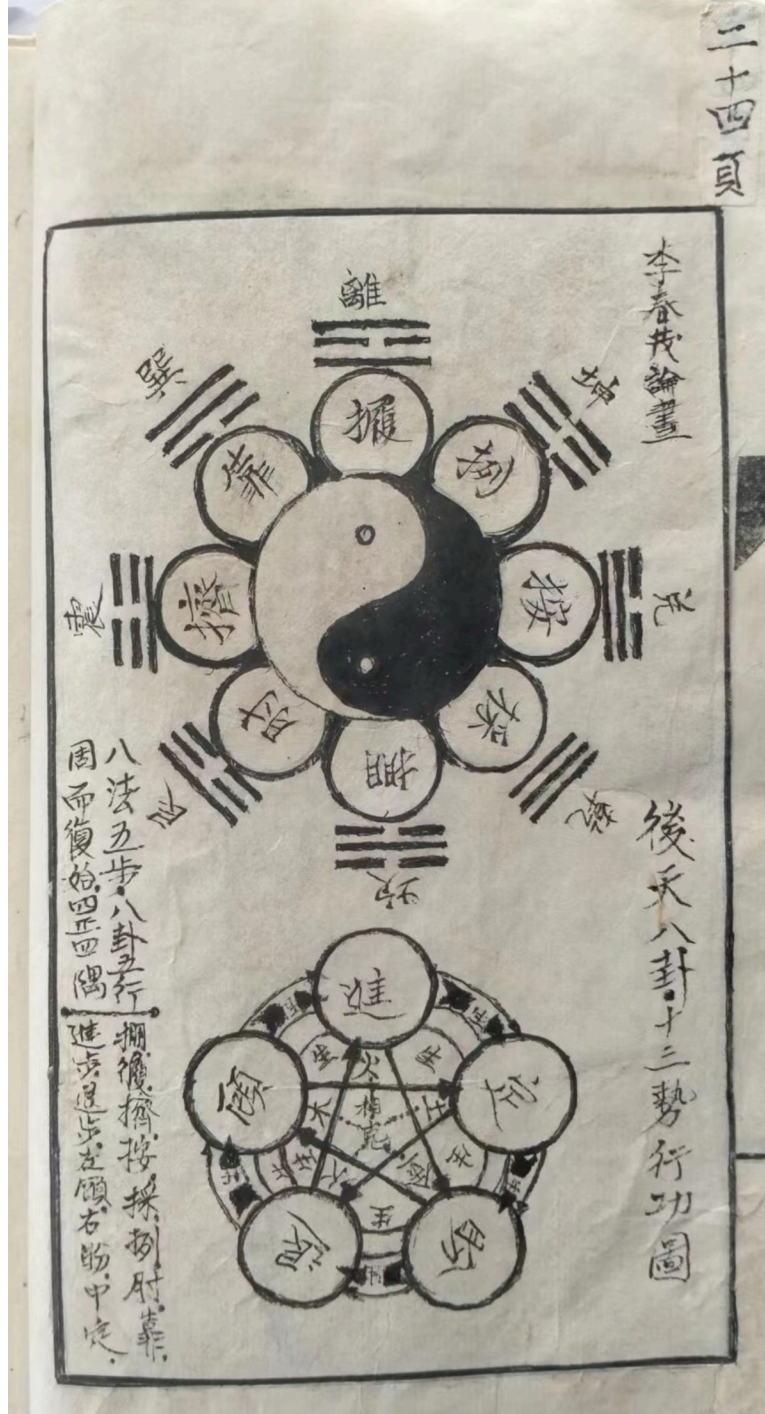 二十四頁
李春茂論畫
後天八卦·十三勢行功圖
離
坤
兌
乾
坎
艮
震
巽
捋
按
採
掤
肘
擠
靠
進
定
盼
退
顧
火
土
金
水
木
生
生
生
八法五步·八卦五行
周而復始·四正四隅
掤·擠·按·採·挒·肘·靠·
進步·退步·左顧·右盼·中定·